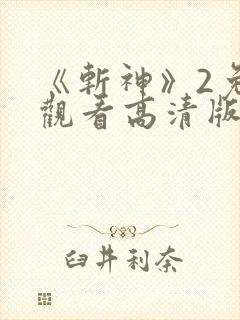 《斬神》2免
觀看高清版
臼井利奈